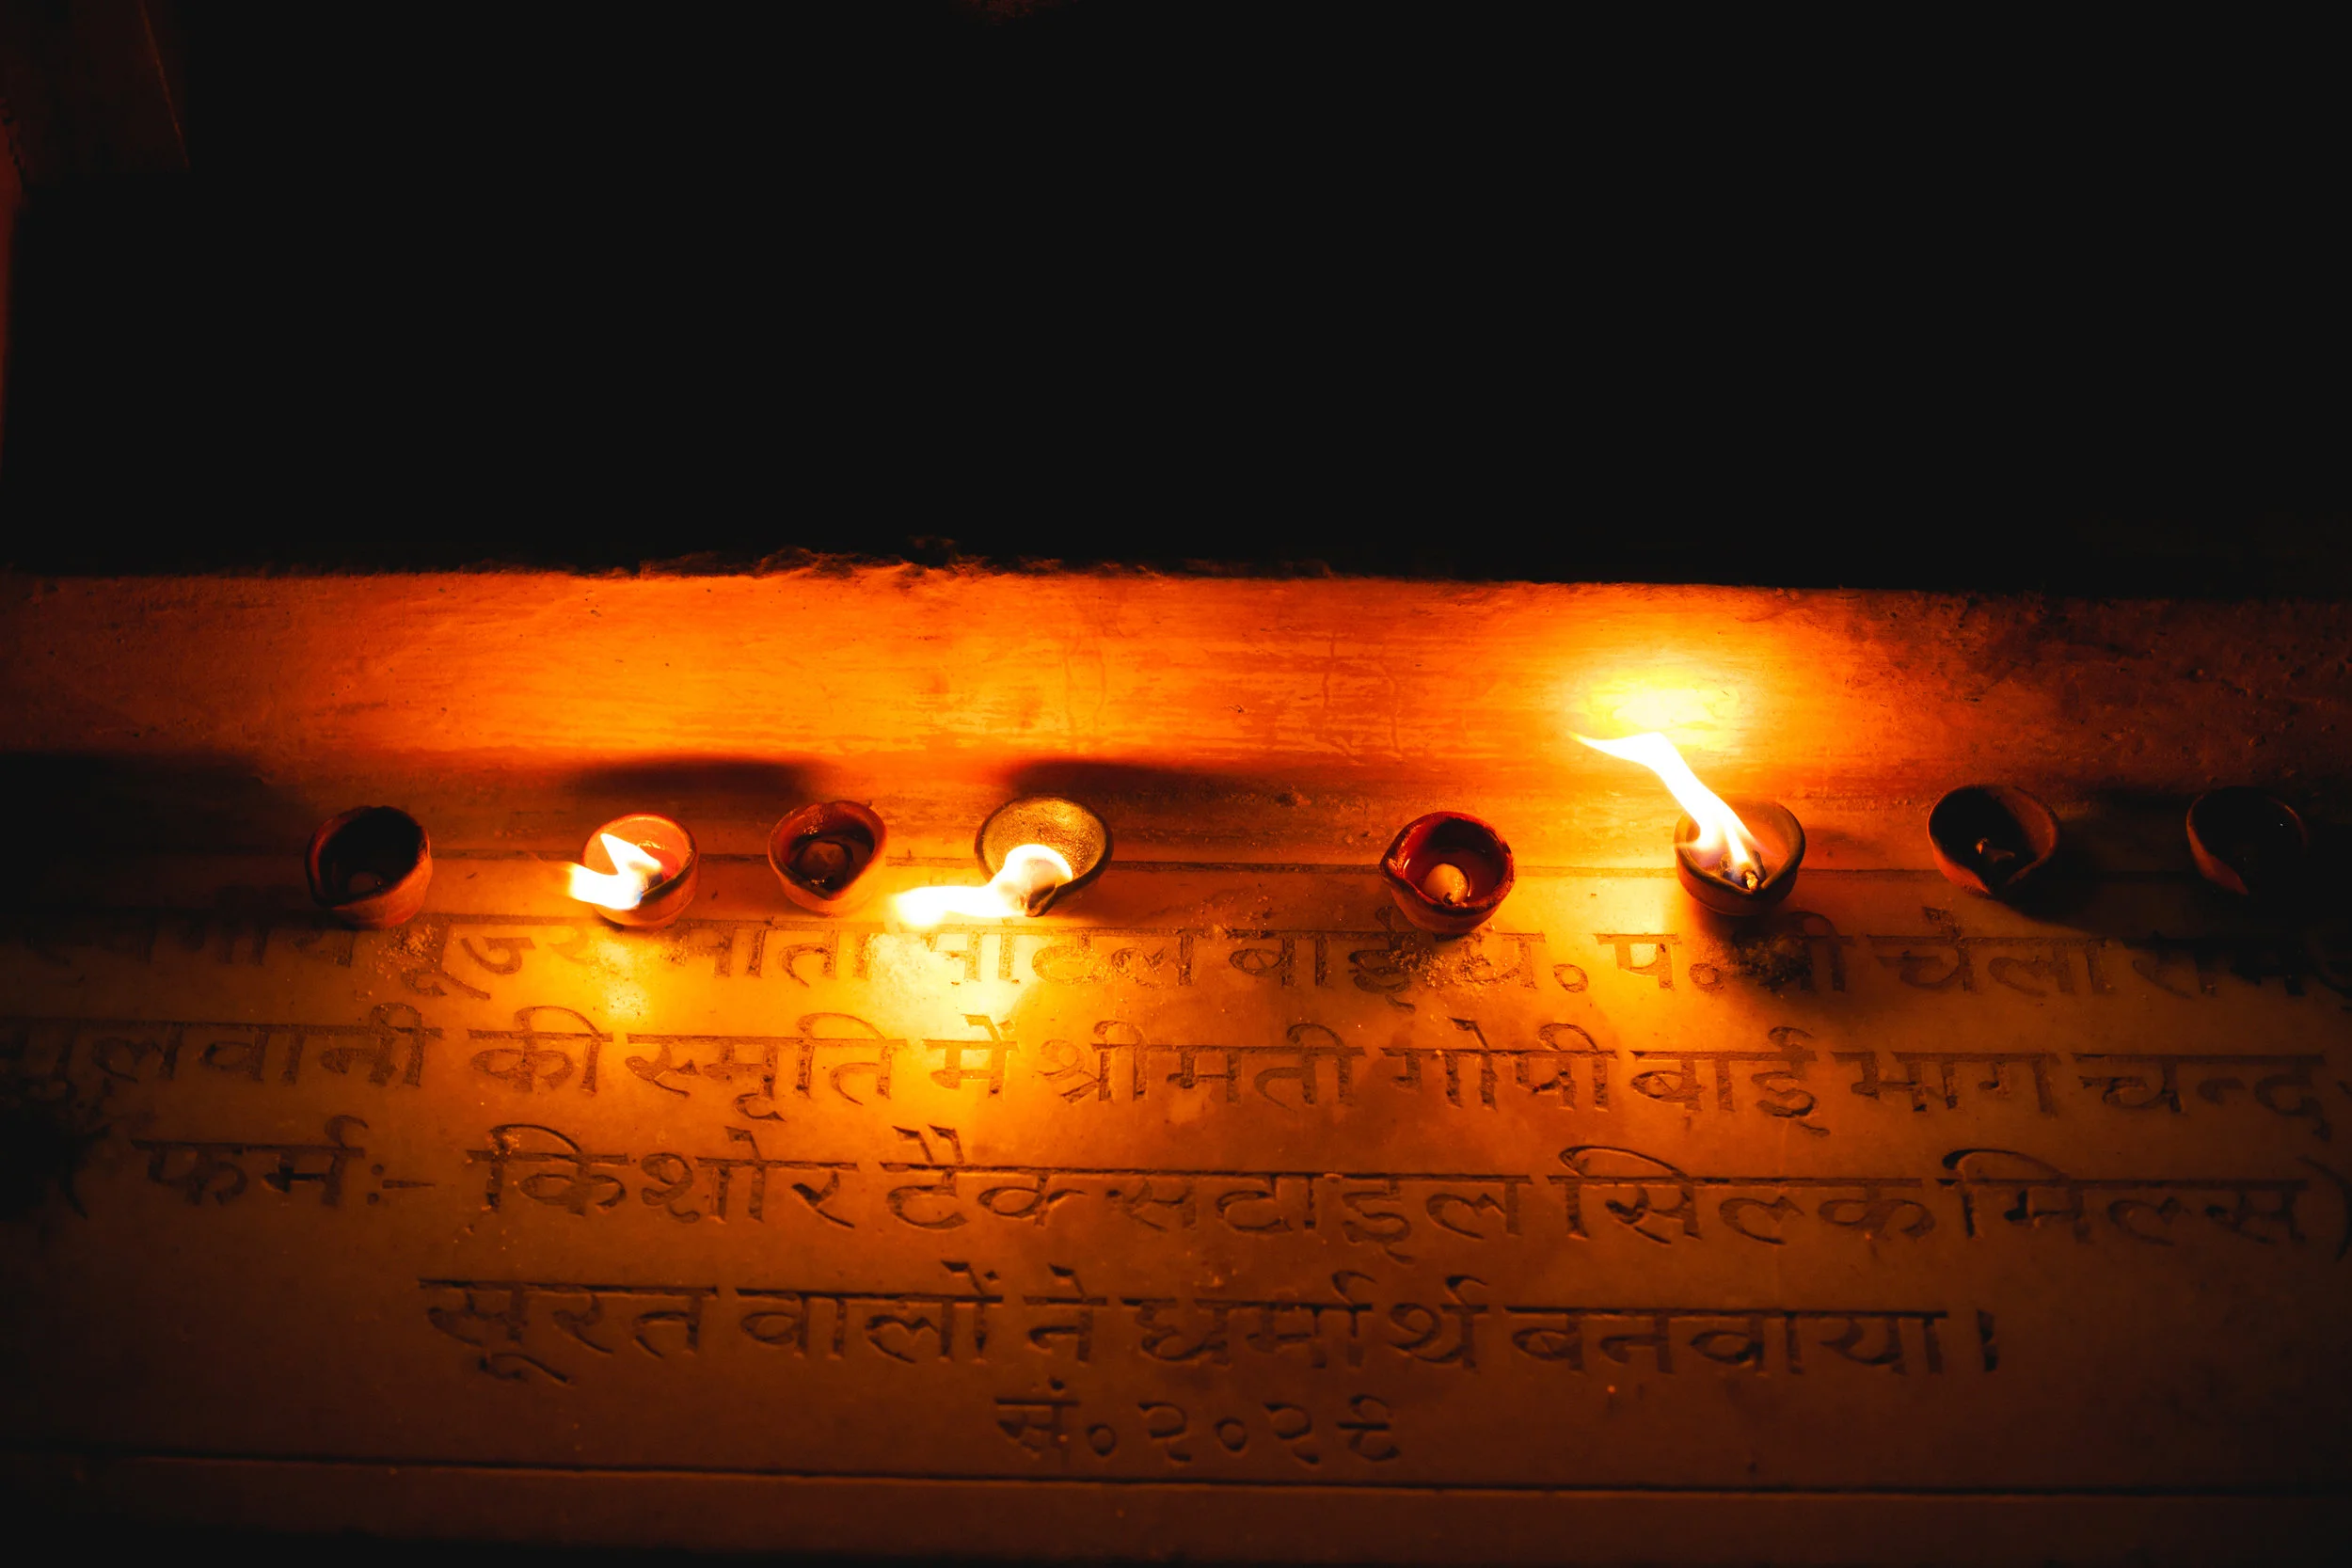 पूज्य माता बाई ध. प. श्री चेला राम
मूलवानी की स्मृति में श्रीमती गोपी बाई भाग चन्द
( फर्म:- किशोर टैक्सटाइल सिल्क मिल्स )
सूरत वालों ने धर्मार्थ बनवाया।
सं॰ २०२९